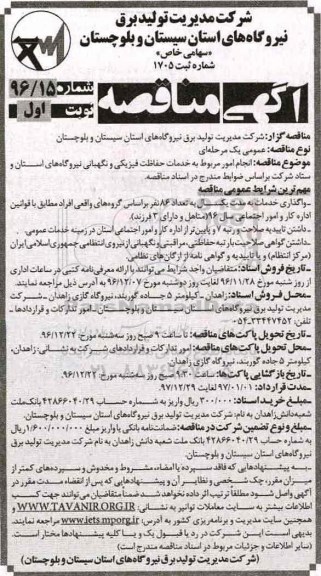 شرکت مدیریت تولید برق
نیروگاه‌های استان سیستان و بلوچستان
«سهامی خاص»
شماره ثبت ۱۷۰۵
آگهی مناقصه
شماره ۹۶/۱۵
نوبت اول
مناقصه گزار: شرکت مدیریت تولید برق نیروگاه‌های استان سیستان و بلوچستان
نوع مناقصه: عمومی یک مرحله‌ای
موضوع مناقصه: انجام امور مربوط به خدمات حفاظت فیزیکی و نگهبانی نیروگاه‌های استان و
ستاد شرکت براساس ضوابط مندرج در اسناد مناقصه.
مهم‌ترین شرایط عمومی مناقصه
- واگذاری خدمات به مدت یکسال به تعداد ۸۶ نفر براساس گروه‌های واقعی افراد مطابق با قوانین
اداره کار و امور اجتماعی سال ۹۶ (متاهل و دارای ۲ فرزند).
- داشتن تاییدیه صلاحیت و رتبه ۷ و پایین‌تر از اداره کار و امور اجتماعی استان در زمینه خدمات عمومی.
- داشتن گواهی صلاحیت با رتبه حفاظتی، مراقبتی و نگهبانی از نیروی انتظامی جمهوری اسلامی ایران
(مرکز انتظام) و یا تاییدیه و گواهی نامه از ارگان‌های نظامی.
- تاریخ فروش اسناد: متقاضیان واجد شرایط می‌توانند با ارائه معرفی‌نامه کتبی در ساعات اداری
از روز شنبه مورخ ۹۶/۱۱/۲۸ لغایت روز دوشنبه مورخ ۹۶/۱۲/۰۷ به آدرس ذیل مراجعه نمایند.
- محل فروش اسناد: زاهدان - کیلومتر ۵ جاده گوربند، نیروگاه گازی زاهدان - شرکت
مدیریت تولید برق نیروگاه‌های استان سیستان و بلوچستان - امور تدارکات و قراردادها -
تلفن: ۳۳۴۴۷۴۵۲-۰۵۴
- تاریخ تحویل پاکت‌های مناقصه: تا ساعت ۹ صبح روز سه‌شنبه مورخ ۹۶/۱۲/۲۲.
- محل تحویل پاکت‌های مناقصه: امور تدارکات و قراردادهای شرکت به نشانی: زاهدان،
کیلومتر ۵ جاده گوربند، نیروگاه گازی زاهدان.
- تاریخ بازگشایی پاکت‌ها: ساعت صبح روز سه‌شنبه مورخ ۹۶/۱۲/۲۲.
- مدت قرارداد: ۹۷/۰۱/۰۱ لغایت ۹۷/۱۲/۲۹
- مبلغ خرید اسناد: ۳۰۰/۰۰۰ ریال واریز به شماره حساب ۴۲۸۶۶۰۴۰/۲۹ بانک ملت
شعبه دانش زاهدان به نام: شرکت مدیریت تولید برق نیروگاه‌های استان سیستان و بلوچستان.
- مبلغ و نوع تضمین شرکت در مناقصه: ضمانت‌نامه بانکی یا واریز مبلغ ۱/۶۰۰/۰۰۰/۰۰۰ ریال
به شماره حساب ۴۲۸۶۶۰۴۰/۲۹ بانک ملت شعبه دانش زاهدان به نام شرکت مدیریت تولید برق
نیروگاه‌های استان سیستان و بلوچستان.
- به پیشنهادهایی که فاقد سپرده یا امضاء، مشروط و مخدوش و سپرده‌های کمتر از
میزان مقرر، چک شخصی و نظایر آن و پیشنهادهایی که پس از انقضاء مدت مقرر در
آگهی واصل شود مطلقاً ترتیب اثر داده نخواهد شد ضمناً متقاضیان می‌توانند جهت کسب
اطلاعات بیشتر به سایت معاملات توانیر به نشانی: WWW.TAVANIR.ORG.IR و
همچنین سایت مدیریت و برنامه‌ریزی کشور به آدرس: www.iets.mporg.ir مراجعه نمایند.
بدیهی است این شرکت در رد یا قبول یک و یا کلیه پیشنهادها مختار است.
(سایر اطلاعات و جزئیات مربوط در اسناد مناقصه مندرج است)
(شرکت مدیریت تولید برق نیروگاه‌های استان سیستان و بلوچستان)